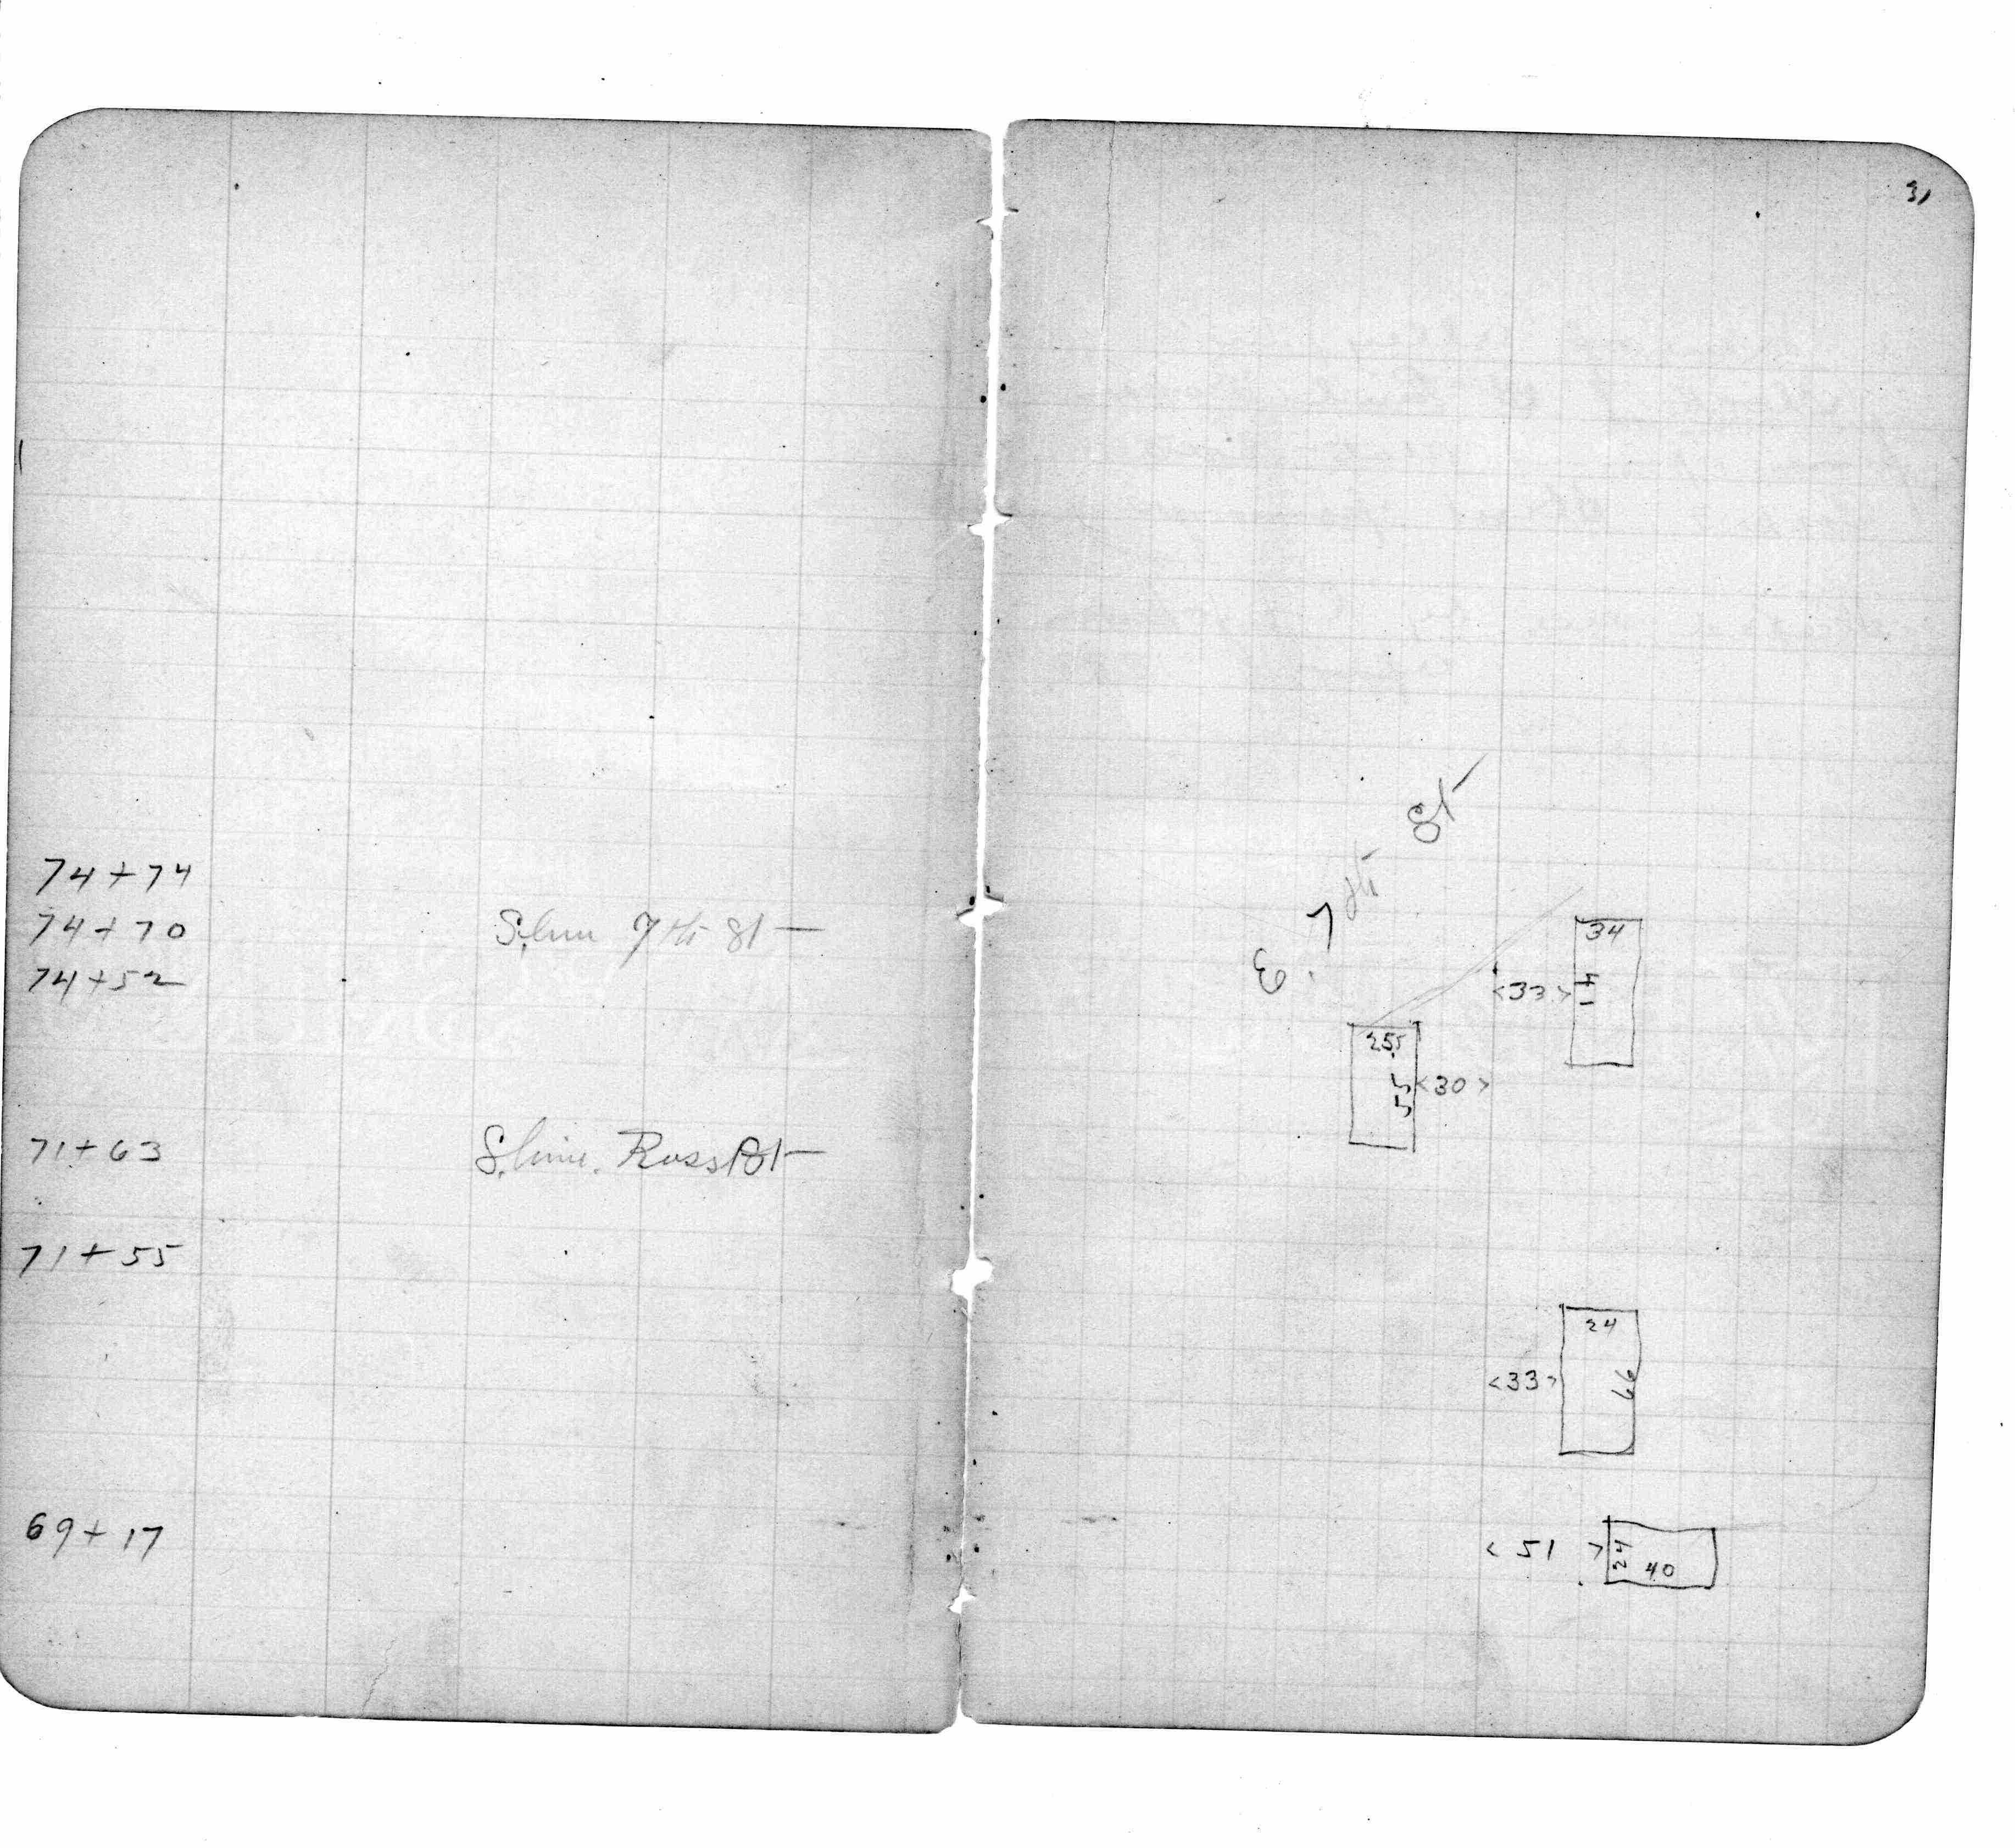 74+74
74+70 S. line 7th St
74+52
71+63 S. line. Ross St
71+55
69+17
31
E. 7 th St
34
<33> 41
25.5
55 <30>
24
<33> 66
<51> 24 40